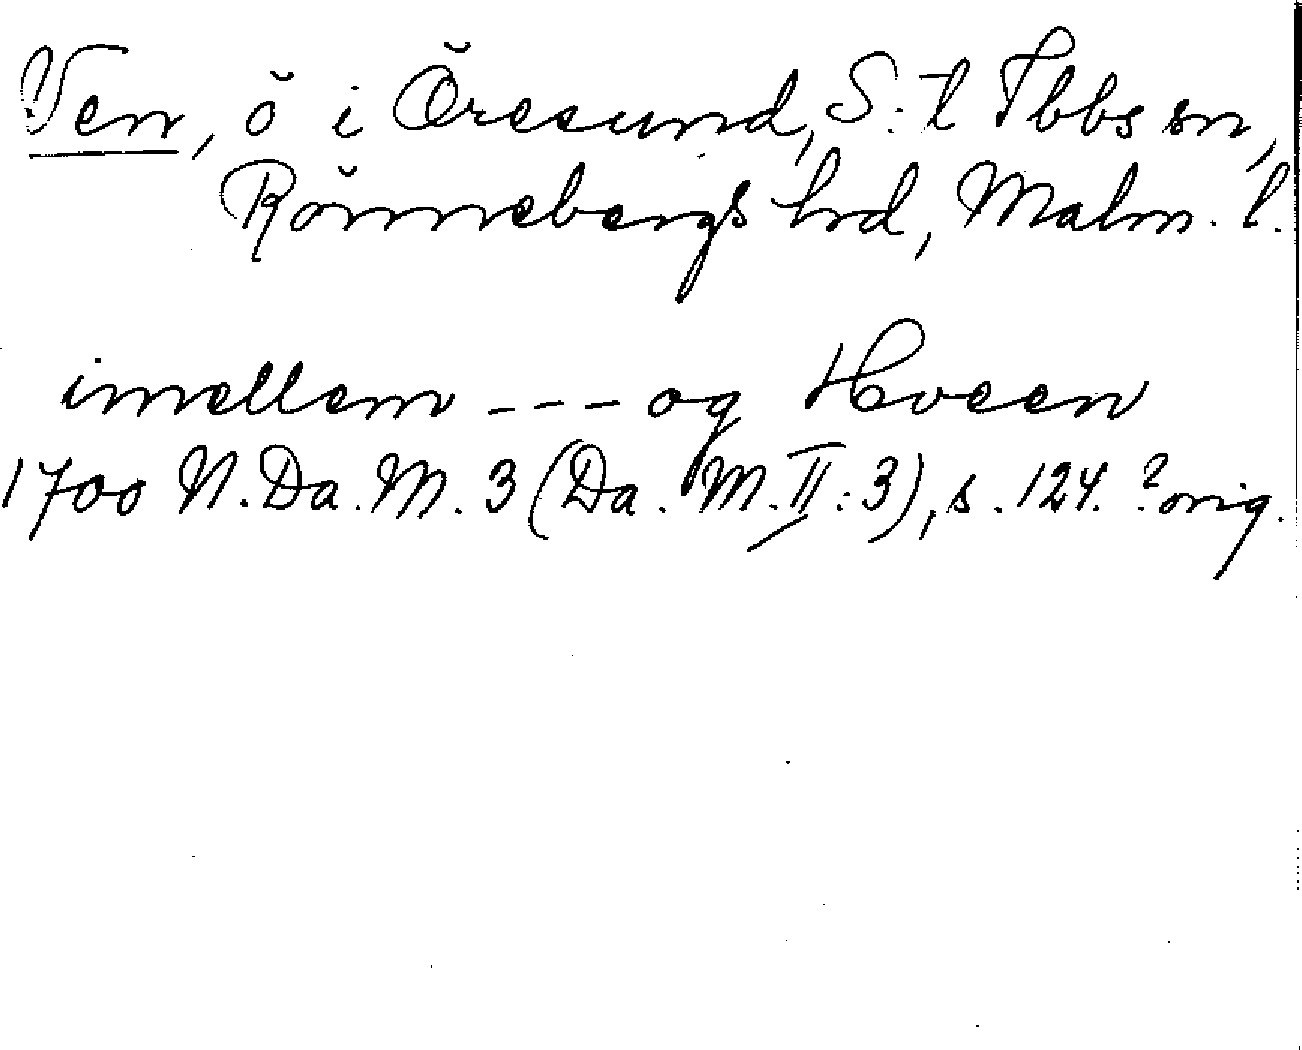 Ven, ö i Öresund, S:t Ibbs sn,
Rönnebergs hrd, Malm. l.
imellem --- og Hveen
1700 N. Da. M. 3 (Da. M. II: 3), s. 124. ? orig.